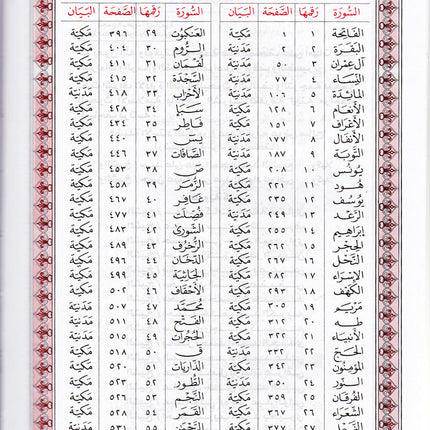 السُّورَة رَقمهَا الصَّفحَة البَيَان
الفَاتِحَة ١ ١ مَكيّة
البَقَرَة ٢ ٢ مَدنيّة
آل عِمرَان ٣ ٥٠ مَدنيّة
النِّسَاء ٤ ٧٧ مَدنيّة
المَائدة ٥ ١٠٦ مَدنيّة
الأنعَام ٦ ١٢٨ مَكيّة
الأعرَاف ٧ ١٥١ مَكيّة
الأنفَال ٨ ١٧٧ مَدنيّة
التوبَة ٩ ١٨٧ مَدنيّة
يُونس ١٠ ٢٠٨ مَكيّة
هُود ١١ ٢٢١ مَكيّة
يُوسُف ١٢ ٢٣٥ مَكيّة
الرَّعد ١٣ ٢٤٩ مَدنيّة
إبراهِيم ١٤ ٢٥٥ مَكيّة
الحِجر ١٥ ٢٦٢ مَكيّة
النَّحل ١٦ ٢٦٧ مَكيّة
الإسرَاء ١٧ ٢٨٢ مَكيّة
الكهف ١٨ ٢٩٣ مَكيّة
مَريَم ١٩ ٣٠٥ مَكيّة
طه ٢٠ ٣١٢ مَكيّة
الأنبيَاء ٢١ ٣٢٢ مَكيّة
الحَج ٢٢ ٣٣٢ مَدنيّة
المؤمنون ٢٣ ٣٤٢ مَكيّة
النُّور ٢٤ ٣٥٠ مَدنيّة
الفُرقان ٢٥ ٣٥٩ مَكيّة
الشُّعَرَاء ٢٦ ٣٦٧ مَكيّة
النَّمل ٢٧ ٣٧٧ مَكيّة
السُّورَة رَقمهَا الصَّفحَة البَيَان
العَنكبوت ٢٩ ٣٩٦ مَكيّة
الرُّوم ٣٠ ٤٠٤ مَكيّة
لقمَان ٣١ ٤١١ مَكيّة
السَّجدَة ٣٢ ٤١٥ مَكيّة
الأحزَاب ٣٣ ٤١٨ مَدنيّة
سَبَإ ٣٤ ٤٢٨ مَكيّة
فَاطِر ٣٥ ٤٣٤ مَكيّة
يسٓ ٣٦ ٤٤٠ مَكيّة
الصَّافات ٣٧ ٤٤٦ مَكيّة
صٓ ٣٨ ٤٥٣ مَكيّة
الزُّمَر ٣٩ ٤٥٨ مَكيّة
غَافِر ٤٠ ٤٦٧ مَكيّة
فُصّلَت ٤١ ٤٧٧ مَكيّة
الشّورىٰ ٤٢ ٤٨٣ مَكيّة
الزّخرُف ٤٣ ٤٨٩ مَكيّة
الدّخَان ٤٤ ٤٩٦ مَكيّة
الجَاثيَة ٤٥ ٤٩٩ مَكيّة
الأحقاف ٤٦ ٥٠٢ مَكيّة
مُحَمَّد ٤٧ ٥٠٧ مَدنيّة
الفَتْح ٤٨ ٥١١ مَدنيّة
الحُجرَات ٤٩ ٥١٥ مَدنيّة
قٓ ٥٠ ٥١٨ مَكيّة
الذاريَات ٥١ ٥٢٠ مَكيّة
الطُّور ٥٢ ٥٢٣ مَكيّة
النَّجْم ٥٣ ٥٢٦ مَكيّة
القَمَر ٥٤ ٥٢٨ مَكيّة
الرَّحمٰن ٥٥ ٥٣١ مَدنيّة